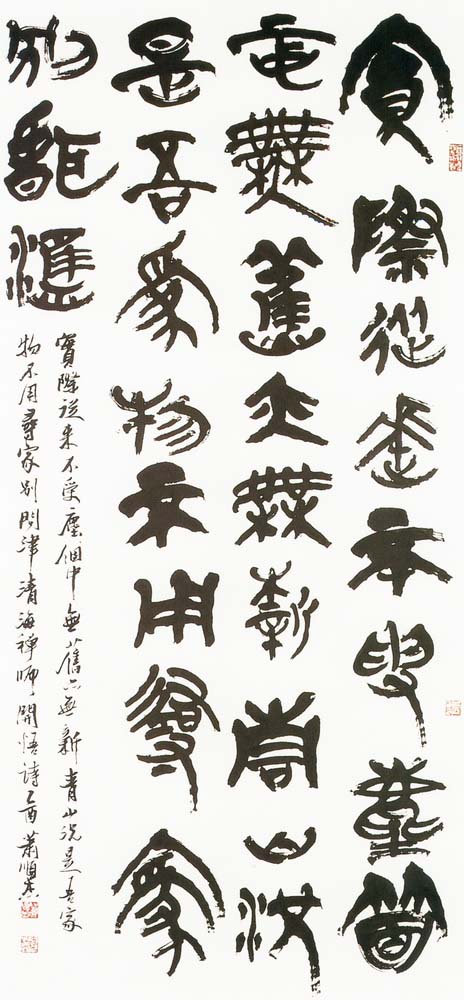 實際從來不受塵箇
中無舊亦無新青山況
是吾家物不用尋家
別問津
實際從來不受塵個中無舊亦無新青山況是吾家
物不用尋家別問津清海禪師開悟詩乙酉蕭順